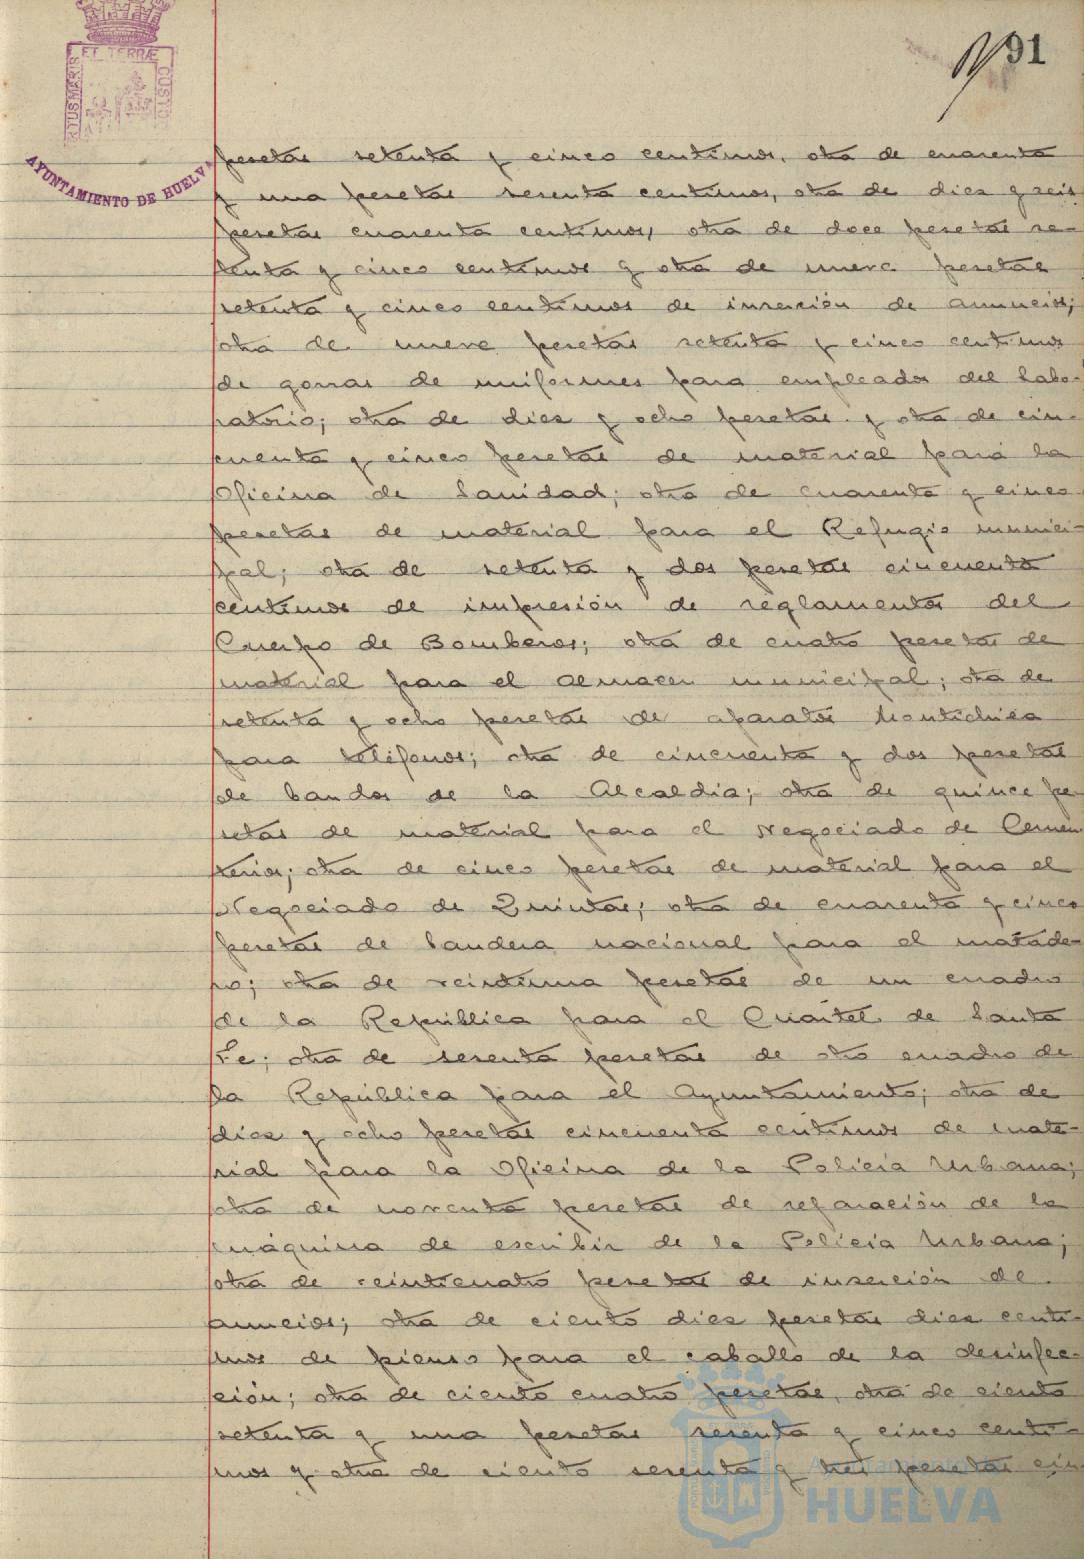 91
ET TERRÆ
CUSTO
PORTUS MARIS
AYUNTAMIENTO DE HUELVA
pesetas setenta y cinco centimos, otra de cuarenta
y una pesetas sesenta centimos, otra de diez y seis
pesetas cuarenta centimos, otra de doce pesetas se-
tenta y cinco centimos y otra de nueve pesetas
setenta y cinco centimos de inserción de anuncios;
otra de nueve pesetas setenta y cinco centimos
de gorras de uniformes para empleados del Labo-
ratorio; otra de diez y ocho pesetas y otra de cin-
cuenta y cinco pesetas de material para la
Oficina de Sanidad; otra de cuarenta y cinco
pesetas de material para el Refugio munici-
pal; otra de setenta y dos pesetas cincuenta
centimos de impresión de reglamentos del
Cuerpo de Bomberos; otra de cuatro pesetas de
material para el almacen municipal; otra de
setenta y ocho pesetas de aparatos
para teléfonos; otra de cincuenta y dos pesetas
de bandos de la Alcaldia; otra de quince pe-
setas de material para el Negociado de Cemen
terios; otra de cinco pesetas de material para el
Negociado de Quintas; otra de cuarenta y cinco
pesetas de bandera nacional para el matade-
ro; otra de veintiuna pesetas de un cuadro
de la República para el Cuartel de Santa
Fe; otra de sesenta pesetas de otro cuadro de
la República para el Ayuntamiento; otra de
diez y ocho pesetas cincuenta centimos de mate-
rial para la Oficina de la Policía Urbana;
otra de noventa pesetas de reparación de la
máquina de escribir de la Policía Urbana;
otra de veinticuatro pesetas de inserción de
anuncios; otra de ciento diez pesetas diez centi-
mos de pienso para el caballo de la desinfec-
ción; otra de ciento cuatro pesetas, otra de ciento
setenta y una pesetas sesenta y cinco centi-
mos y otra de ciento sesenta y tres pesetas cin
Ayuntamiento
HUELVA